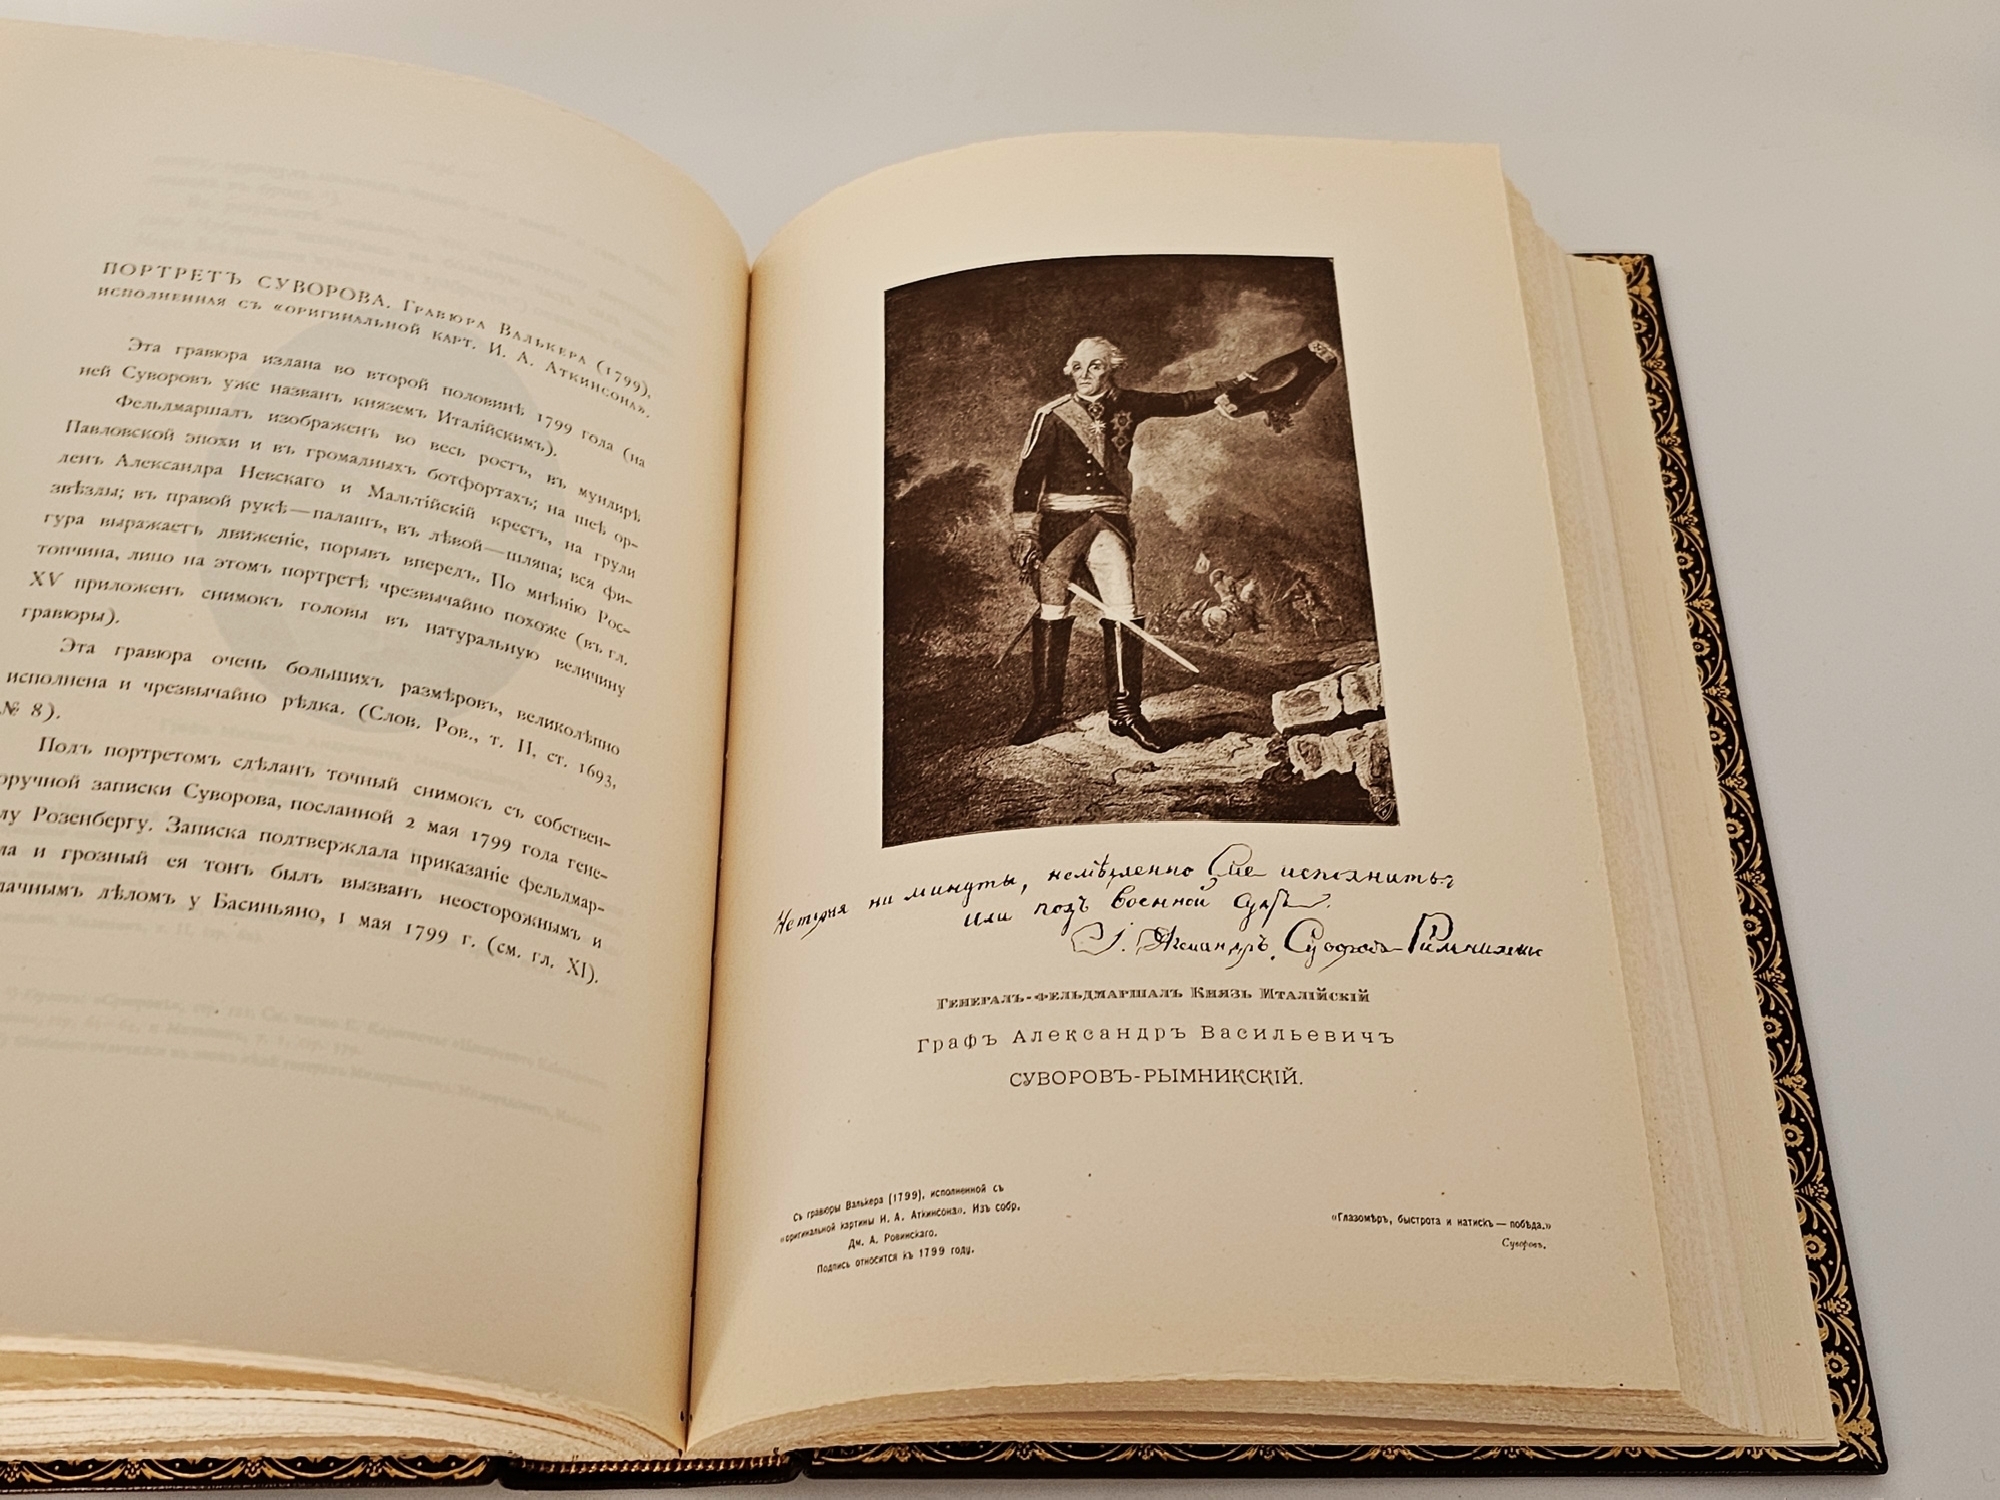 ПОРТРЕТЪ СУВОРОВА. Гравюра Валькера (1799),
исполненная съ «оригинальной карт. И. А. Аткинсона».
Эта гравюра издана во второй половинѣ 1799 года (на
ней Суворовъ уже названъ княземъ Италійскимъ).
Фельдмаршалъ изображенъ во весь ростъ, въ мундирѣ
Павловской эпохи и въ громадныхъ ботфортахъ; на шеѣ ор-
денъ Александра Невскаго и Мальтійскій крестъ, на груди
звѣзды; въ правой рукѣ—палашъ, въ лѣвой—шляпа; вся фи-
гура выражаетъ движеніе, порывъ впередъ. По мнѣнію Рос-
топчина, лицо на этомъ портретѣ чрезвычайно похоже (въ гл.
XV приложенъ снимокъ головы въ натуральную величину
гравюры).
Эта гравюра очень большихъ размѣровъ, великолѣпно
исполнена и чрезвычайно рѣдка. (Слов. Ров., т. II, ст. 1693,
№ 8).
Подъ портретомъ сдѣланъ точный снимокъ съ собствен-
оручной записки Суворова, посланной 2 мая 1799 года гене-
лу Розенбергу. Записка подтверждала приказаніе фельдмар-
ла и грозный ея тонъ былъ вызванъ неосторожнымъ и
дачнымъ дѣломъ у Басиньяно, 1 мая 1799 г. (см. гл. XI).
ни минуты, немѣдленно Сіе исполнить
или подъ военной судъ.
Г. Александръ Суворовъ Рымникскій
Генералъ-фельдмаршалъ Князь Италійскій
Графъ Александръ Васильевичъ
СУВОРОВЪ-РЫМНИКСКІЙ.
Съ гравюры Валькера (1799), исполненной съ
«оригинальной картины И. А. Аткинсона». Изъ собр.
Дм. А. Ровинскаго.
Подпись относится къ 1799 году.
«Глазомѣръ, быстрота и натискъ — побѣда.»
Суворовъ.